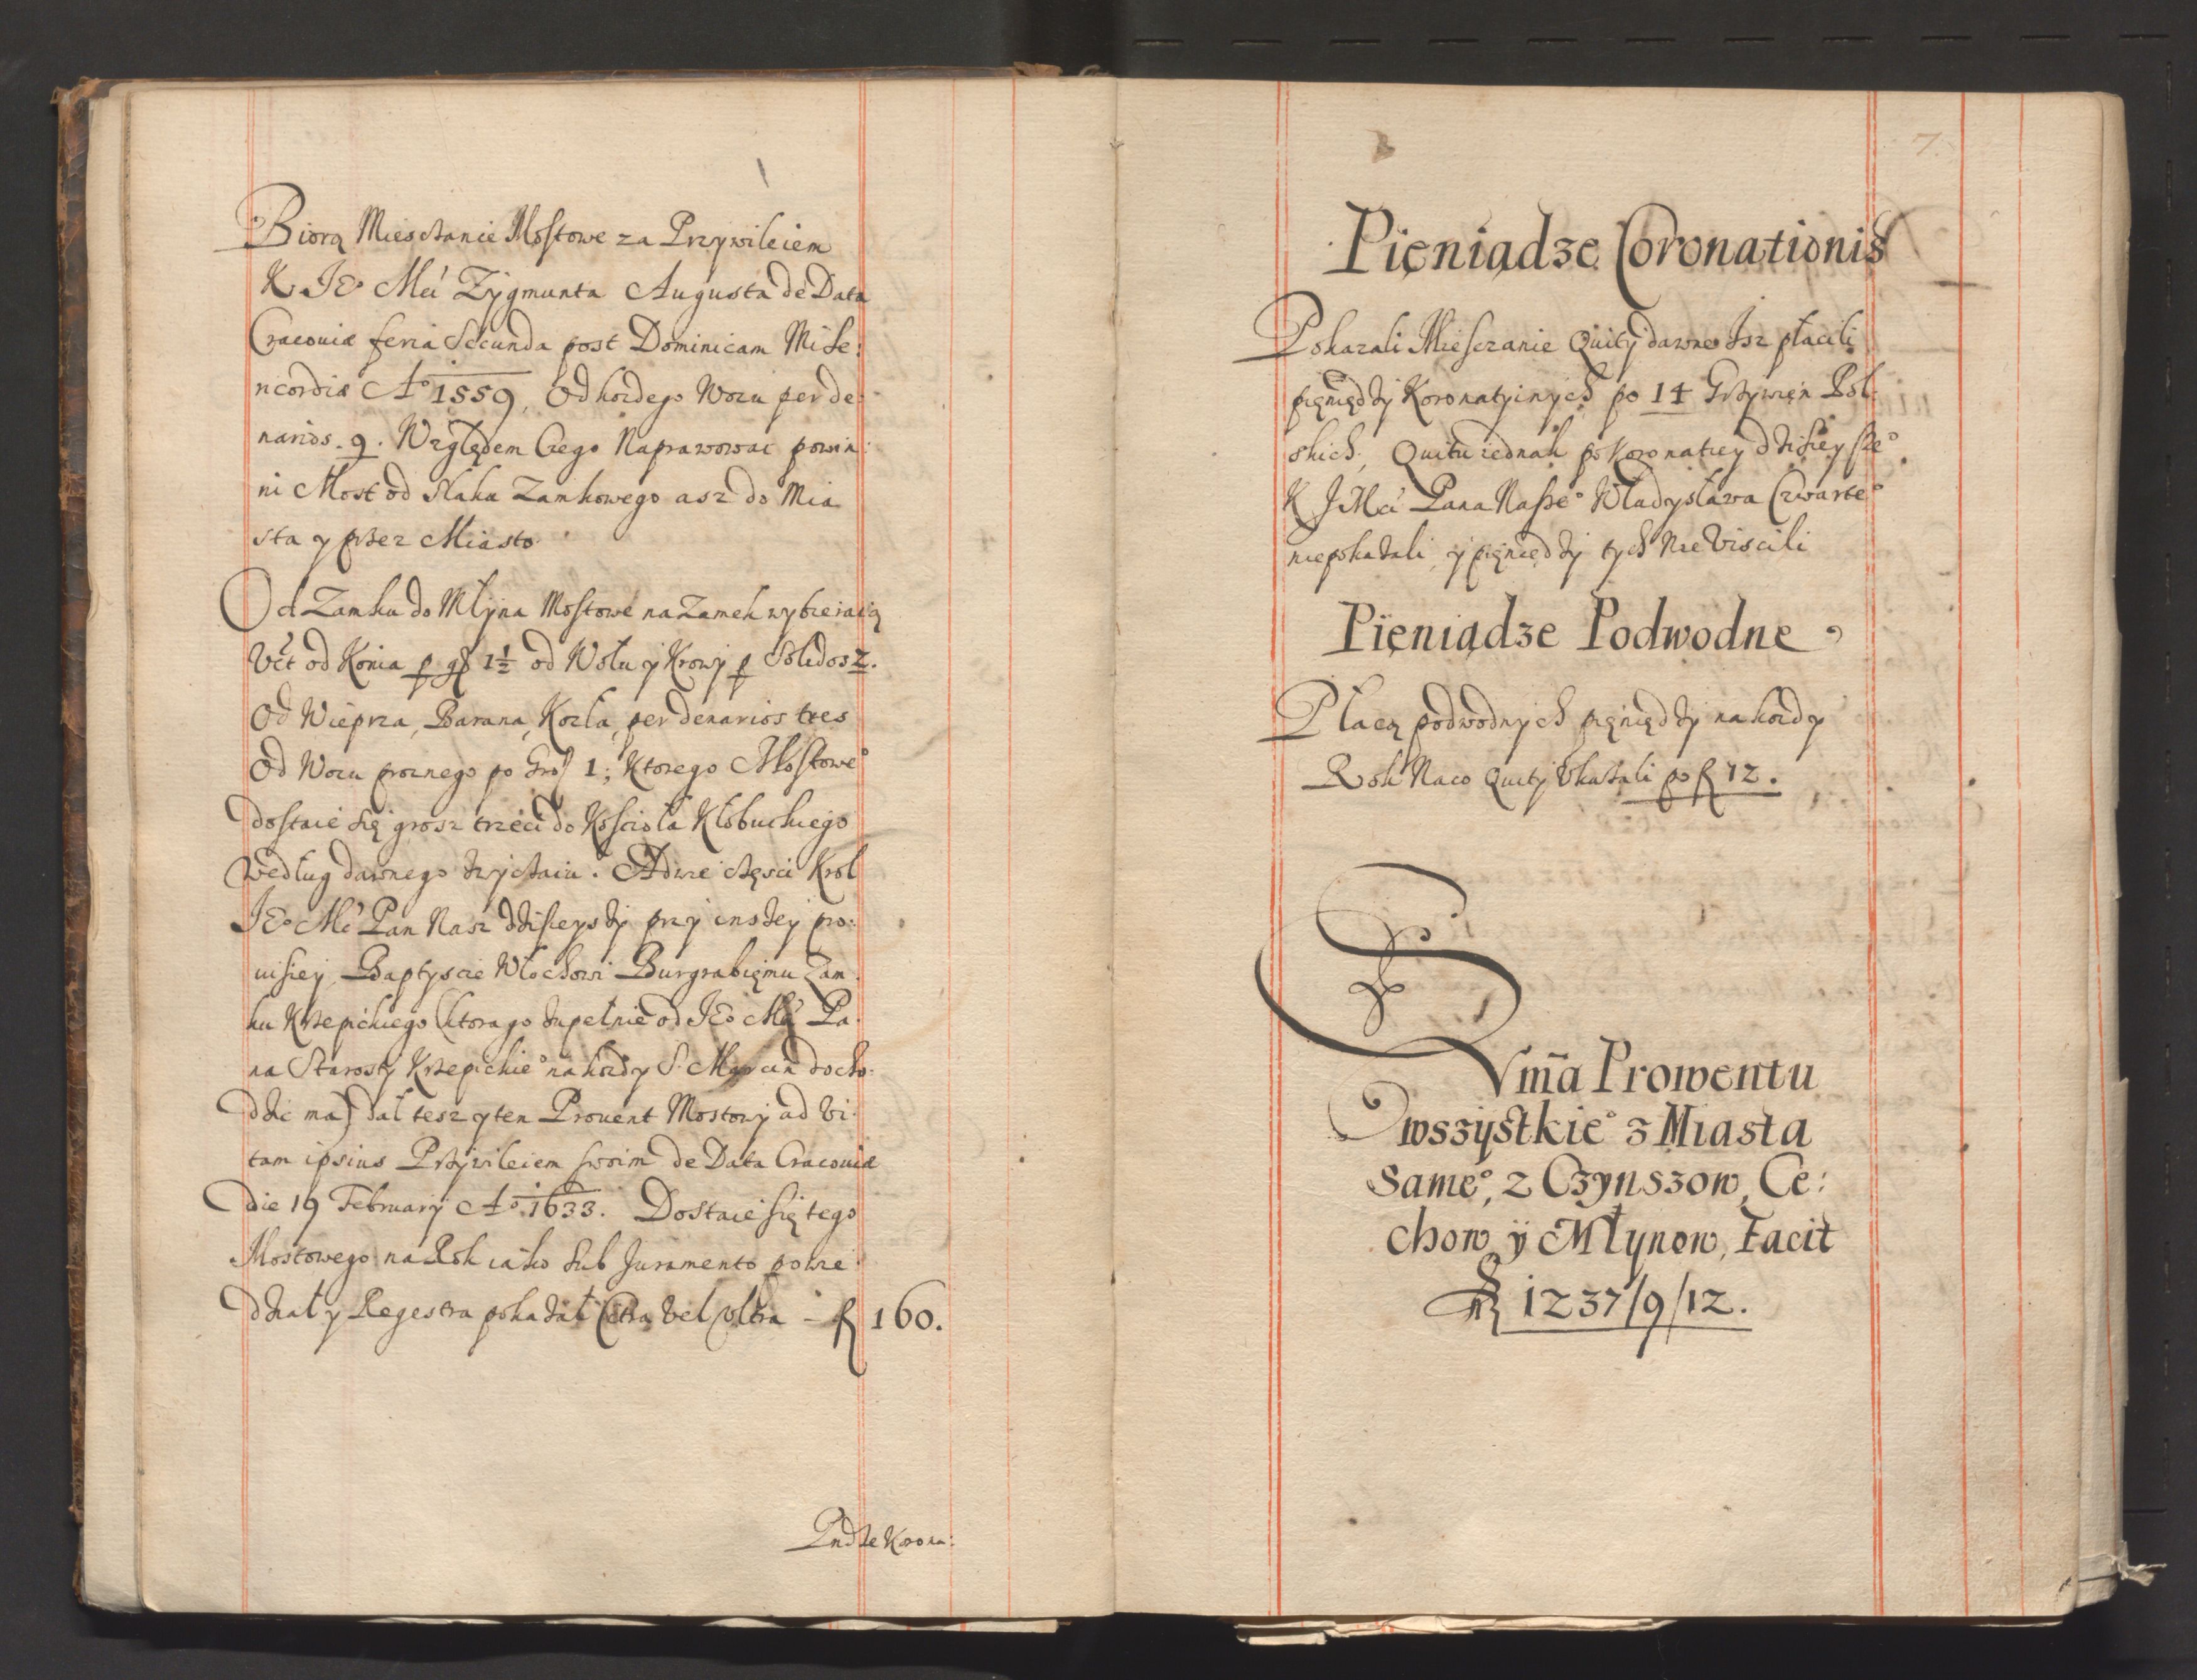 Biorą Miesczanie Mostowe za Przywileiem
K. JEo Mći Zygmunta Augusta de Data
Cracouiæ feria Secunda post Dominicam Mise:
ricordiæ Ao 1559, Od kozdego Wozu per de:
narios 9. Względem Czego Naprawować powin:
ni Most od Slaku Zamkowego asz do Mia
sta y przez Miasto.
Od Zamku do Młyna Mostowe na Zamek wybieraią
Vt od Konia p gr 1½ od Wołu y Krowy p Solidos 2.
Od Wieprza, Barana, Kozła, per denarios tres
Od Wozu proznego po Gros 1; Ktorego Mostoweo
dostaie się grosz trzeci do Kościoła Kłobuckiego
według dawnego zwyczaiu. A dwie części Krol
JEo Mć Pan Nasz dzisieyszy przy inszey pro:
uisiey Baptyscie Włochowi Burgrabięmu Zam
ku Krzepickiego (ktora go zupełnie od JEo Mći Pa
na Starosty Krzepickieo na kozdy S. Marcin docho:
dzic ma) dał tesz y ten Prouent Mostowy ad vi:
tam ipsius Przywileiem swoim de Data Cracouiæ
die 19 February Ao 1633. Dostaie się tego
Mostowego na Rok iako sub Juramento powie
dział y Regestra pokazał Citra vel Vltra – fl 160.
Pndze Korona:
7.
Pięniądze Coronationis
Pokazali Miesczanie Quity dawne Isz płacili
pięniędzy Koronatyinych po 14 Grzywien Pol:
skich, Quitu iednak po Koronatiey dzisieyszeo
K JMći Pana Naszeo Władysława Czwarteo
niepokazali, y pięniędzy tych nie Viscili
Pięniądze Podwodne
Płacą podwodnych pięniędzy na kozdy
Rok Naco Quity Vkazali po fl 12.
Sum̃a Prowentu
wszystkieo z Miasta
Sameo, z Czynszow, Ce:
chow ÿ Młynow, Facit
fl 1237/9/12.